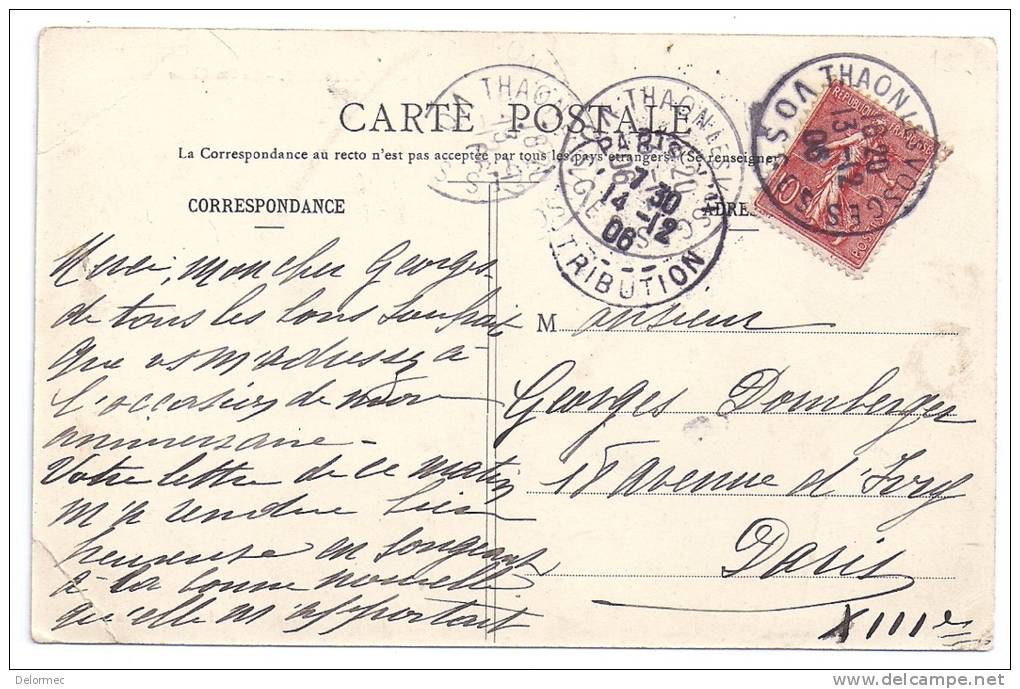 CARTE POSTALE
La Correspondance au recto n'est pas acceptée par tous les pays étrangers. (Se renseigner
CORRESPONDANCE
ADRES
THAON
THAON
PARIS
7 30
14 -12
06
DISTRIBUTION
THAON
VOSGES
8 20
13 -12
06
REPUBLIQUE FRANÇAISE
10
POSTES
Merci, mon cher Georges
de tous les bons souhaits
que vs m'adressez à
l'occasion de mon
anniversaire -
Votre lettre de ce matin
m'a rendue bien
heureuse en songeant
à la bonne nouvelle
qu'elle m'apportait
Monsieur
Georges Domberger
18 avenue d'Ivry
Paris
XIIIe
Delormec
www.delcampe.net